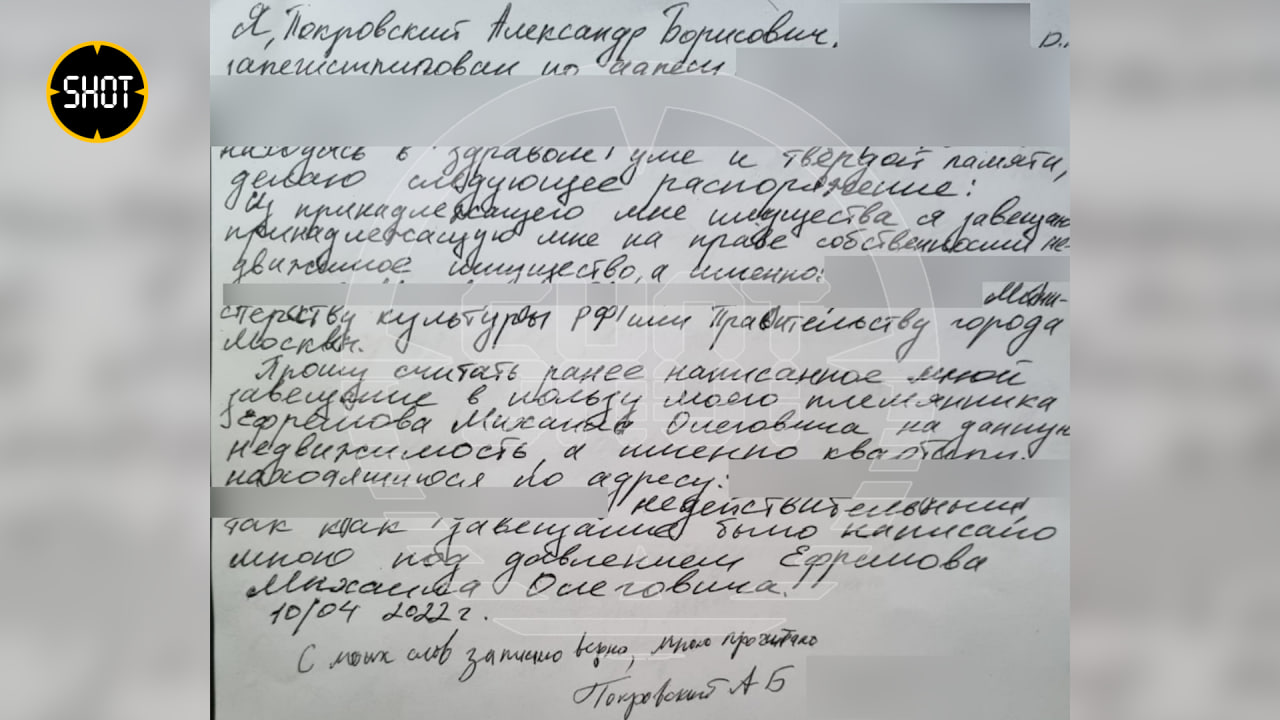 SHOT
Я, Покровский Александр Борисович,
зарегистрирован по адресу
находясь в здравом уме и твёрдой памяти,
делаю следующее распоряжение:
Из принадлежащего мне имущества я завещаю
принадлежащую мне на праве собственности не-
движимое имущество, а именно:
Мини-
стерству культуры РФ или Правительству города
Москвы.
Прошу считать ранее написанное мной
завещание в пользу моего племянника
Ефремова Михаила Олеговича на данную
недвижимость, а именно квартиру
находящуюся по адресу:
недействительным
так как завещание было написано
мною под давлением Ефремова
Михаила Олеговича.
10/04 2022 г.
С моих слов записано верно, мною прочитано
Покровский А Б